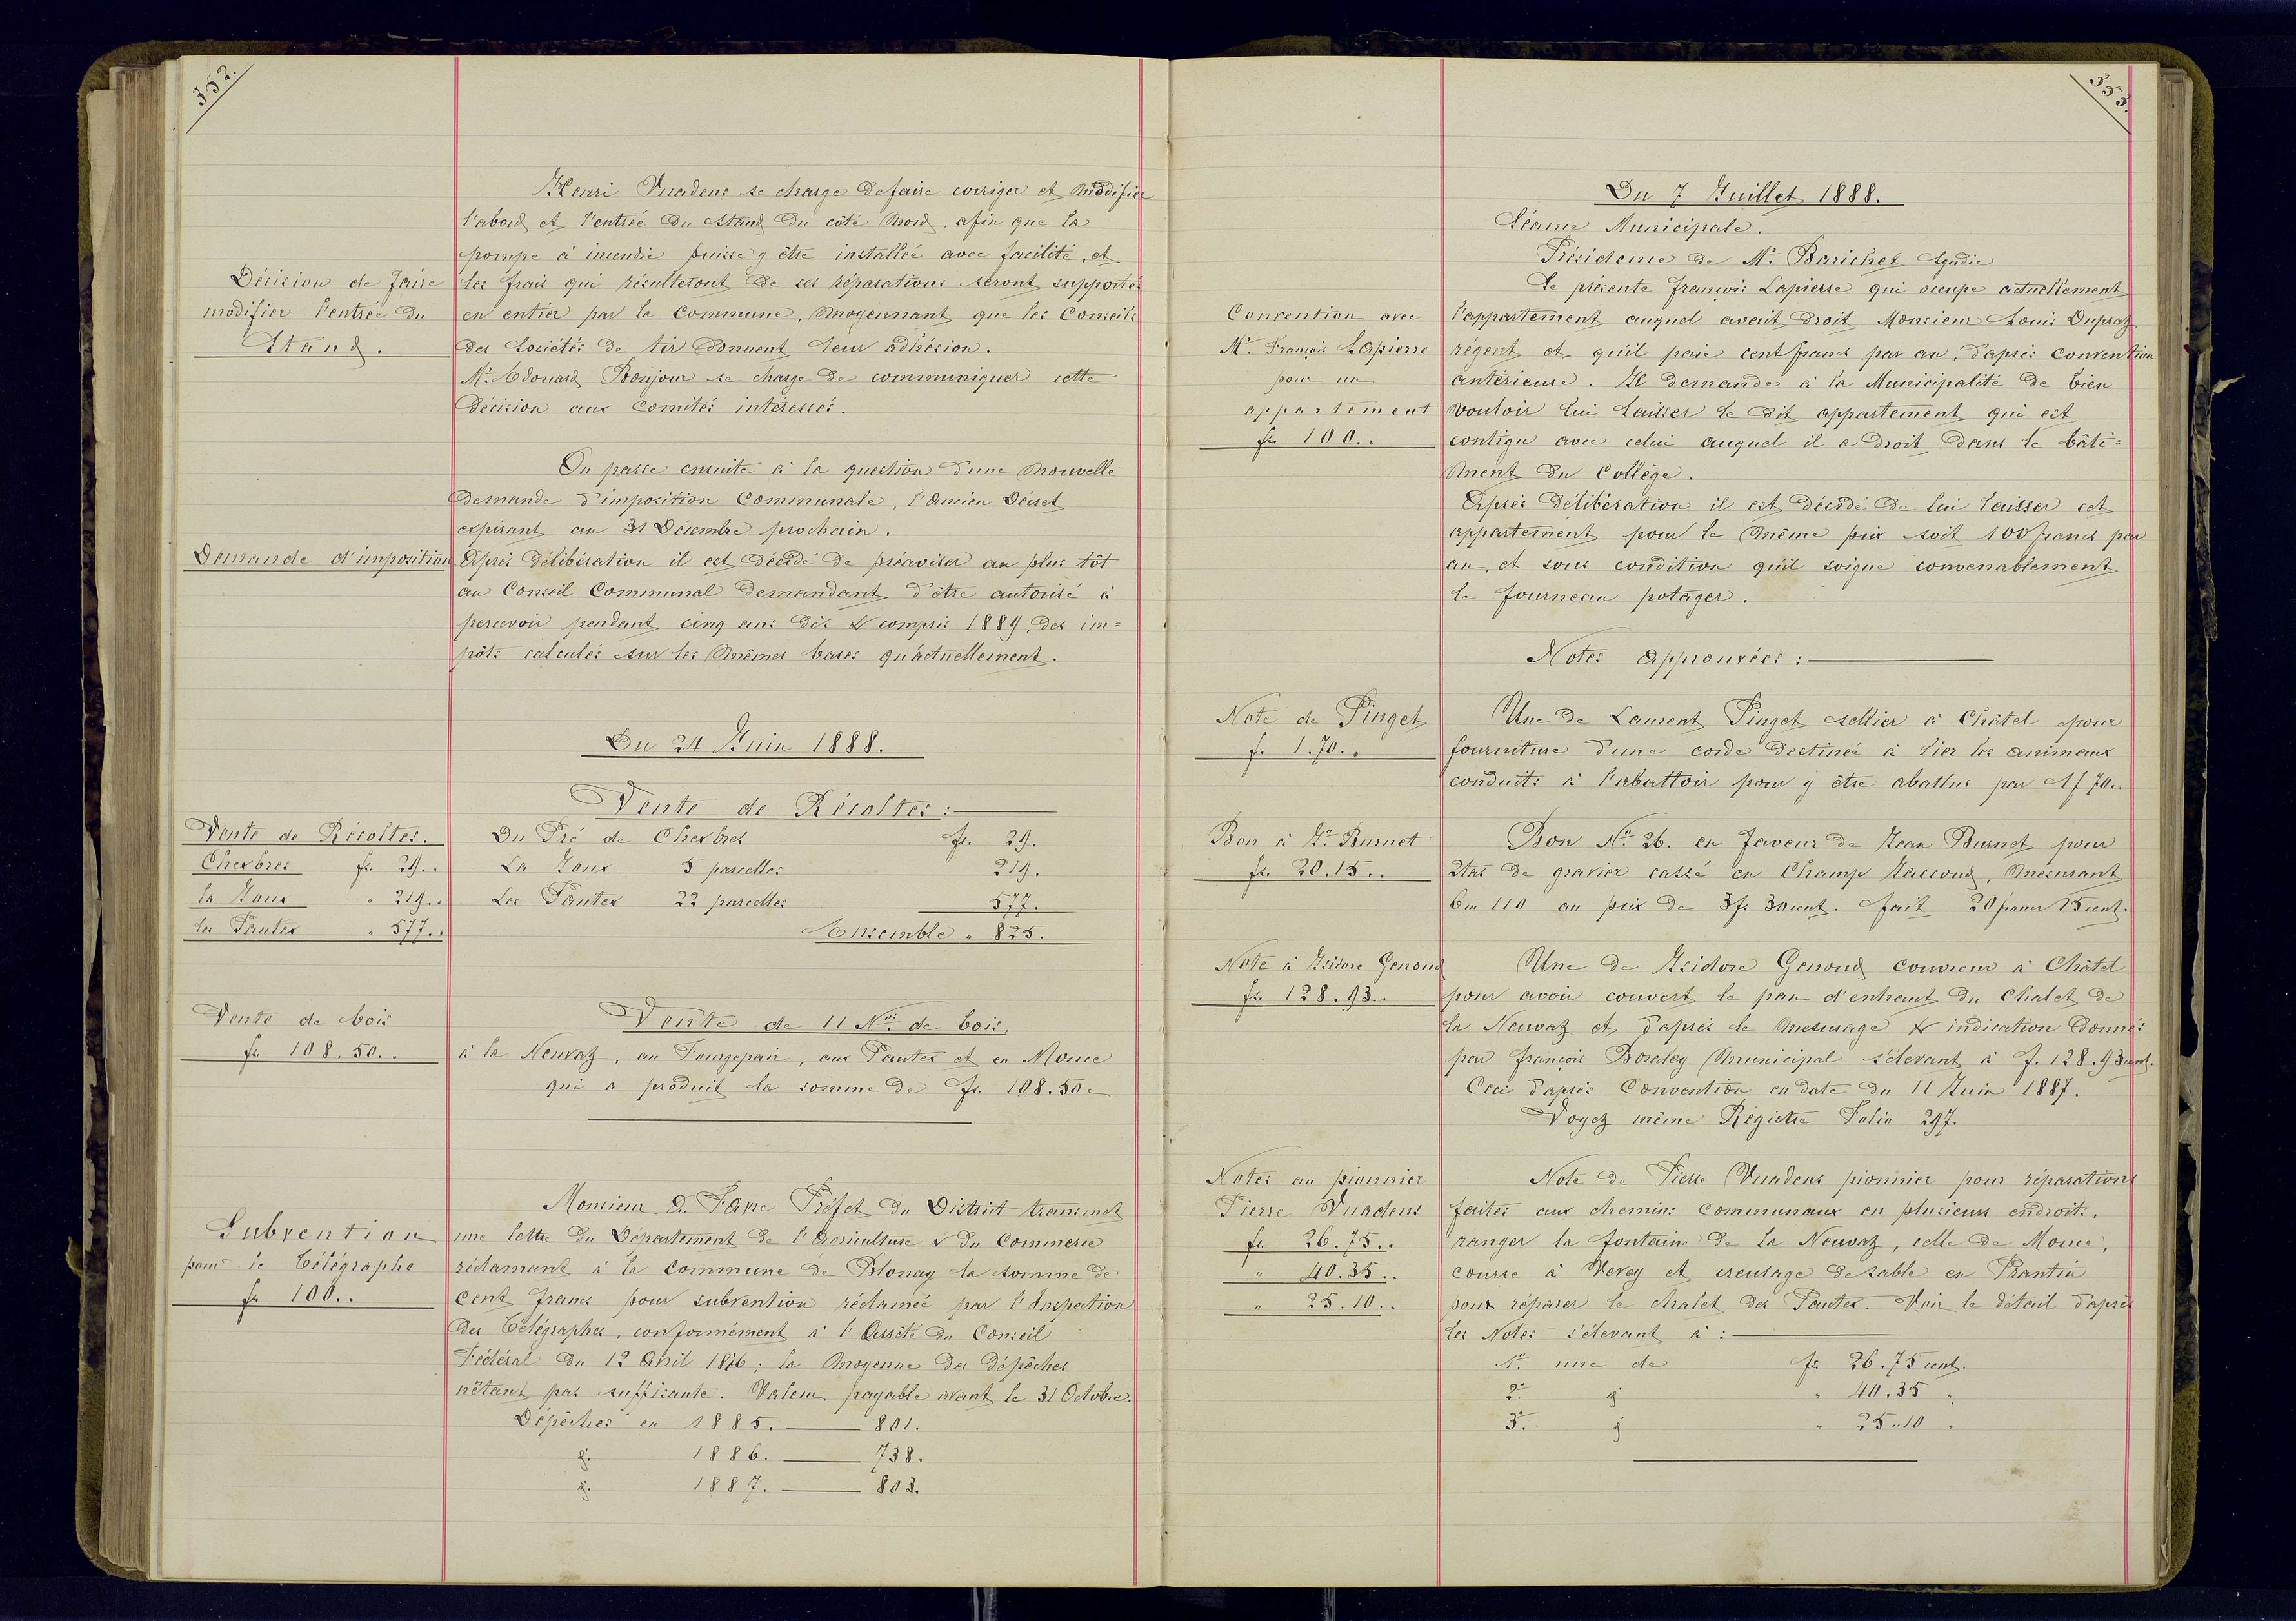 352.
Henri Vuadens se charge de faire corriger et modifier
l'abord et l'entrée du Stand du côté Nord, afin que la
pompe à incendie puisse y être installée avec facilité, et
Décision de faire
modifier l'entrée du
Stand.
les frais qui résulteront de ces réparations seront supportés
en entier par la Commune, moyennant que les Conseils
des Sociétés de tir donnent leur adhésion.
Mr. Edouard Bonjour se charge de communiquer cette
décision aux Comités intéressés.
On passe ensuite à la question d'une nouvelle
demande d'imposition Communale, l'Ancien Décret
expirant au 31 Décembre prochain.
Demande d'imposition
Après délibération il est décidé de préaviser au plus tôt
au Conseil Communal demandant d'être autorisé à
percevoir pendant cinq ans dès & compris 1889, des im=
pôts calculés sur les mêmes bases qu'actuellement.
Du 24 Juin 1888.
Vente de Récoltes:
Vente de Récoltes.
Cherbres fr. 29..
la Joux " 219..
les Pautex " 577..
Du Pré de Cherbres fr. 29.
La Joux 5 parcelles 219.
Les Pautex 22 parcelles 577.
Ensemble " 825.
Vente de bois
fr. 108.50..
Vente de 11 Nos. de bois,
à la Neuvaz, au Fourgepair, aux Pautex et en Mouce
qui a produit la somme de fr. 108.50c
Subvention
pour le Télégraphe
fr 100..
Monsieur D. Favre Préfet du District transmet
une lettre du Département de l'Agriculture & du Commerce
réclamant à la Commune de Blonay la somme de
cent francs pour subvention réclamée par l'Inspection
des Télégraphes, conformément à l'Arrêté du Conseil
Fédéral du 12 Avril 1876; la moyenne des dépêches
n'étant pas suffisante. Valeur payable avant le 31 Octobre.
Dépêches en 1885. 801.
d. 1886. 738.
d. 1887. 803.
353.
Du 7 Juillet 1888.
Séance Municipale.
Présidence de Mr. Barichet Syndic
Convention avec
Mr. François Lapierre
pour un
appartement
fr 100..
Se présente François Lapierre qui occupe actuellement
l'appartement auquel avait droit Monsieur Louis Dupraz
régent et qu'il paie cent francs par an, d'après convention
antérieure. Il demande à la Municipalité de bien
vouloir lui laisser le dit appartement qui est
contigu avec celui auquel il a droit dans le bâti=
ment du Collège.
Après délibération il est décidé de lui laisser cet
appartement pour le même prix soit 100 francs par
an, et sous condition qu'il soigne convenablement
le fourneau potager.
Notes approuvées:
Note de Pinget
f. 1.70..
Une de Laurent Pinget sellier à Châtel pour
fourniture d'une corde destinée à lier les animaux
conduits à l'abattoir pour y être abattus par 1f 70..
Bon à Jn. Burnet
fr. 20.15..
Bon No. 26. en faveur de Jean Burnet pour
2tas de gravier cassé en Champ, mesurant
6m 110 au prix de 3fr 30cent. fait 20 francs 15cent.
Note à Isidore Genoud
fr. 128.93..
Une de Isidore Genoud couvreur à Châtel
pour avoir couvert le pan d'enhaut du Chalet de
la Neuvaz et d'après le mesurage & indication donnés
par François Bonjour municipal s'élevant à f. 128.93cent.
Ceci d'après Convention en date du 11 Juin 1887.
Voyez même Registre Folio 297.
Notes au pionnier
Pierre Vuadens
fr. 26.75..
" 40.35..
" 25.10..
Note de Pierre Vuadens pionnier pour réparations
faites aux chemins Communaux en plusieurs endroits.
ranger la fontaine de la Neuvaz, celle de Mouce,
course à Vevey et creusage de sable en Prantin
pour réparer le chalet des Pautex. Voir le détail d'après
les Notes s'élevant à:
1o. une de fr. 26.75 cent.
2o. d " 40.35 "
3o. d " 25.10 "